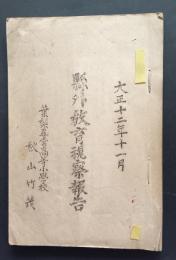 大正十二年十一月
縣外教育視察報告
葉梨尋常高等小學校
秋山竹義